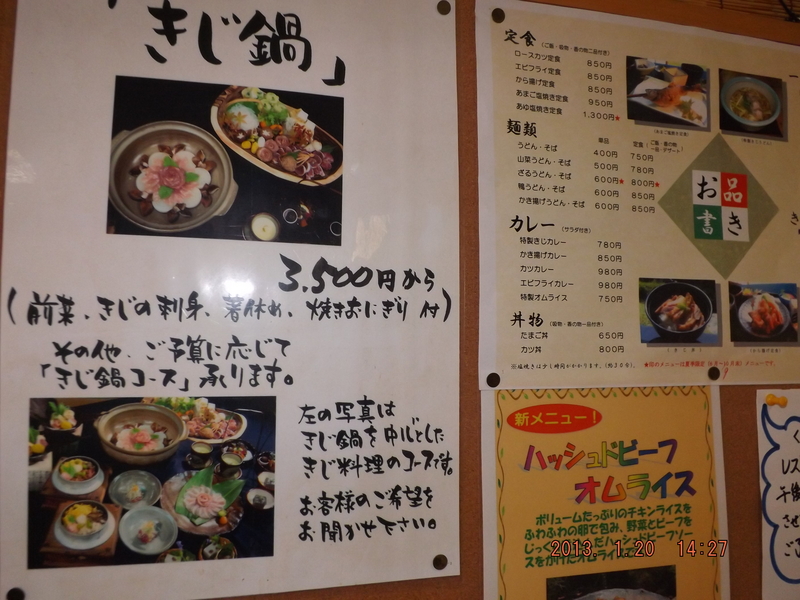 「きじ鍋」
3,500円から
(前菜、きじの刺身、箸休め、焼きおにぎり 付)
その他、ご予算に応じて
「きじ鍋コース」承ります。
左の写真は
きじ鍋を中心とした
きじ料理のコースです。
お客様のご希望を
お聞かせ下さい。
定食 (ご飯・吸物・香の物二品付き)
ロースカツ定食 850円
エビフライ定食 850円
から揚げ定食 850円
あまご塩焼き定食 950円
あゆ塩焼き定食 1,300円★
麺類 単品 定食 (ご飯・香の物 一品・デザート)
うどん・そば 400円 750円
山菜うどん・そば 500円 780円
ざるうどん・そば 600円★ 800円★
鴨うどん・そば 600円 850円
かき揚げうどん・そば 600円 850円
カレー (サラダ付き)
特製きじカレー 780円
かき揚げカレー 850円
カツカレー 980円
エビフライカレー 980円
特製オムライス 750円
丼物 (吸物・香の物一品付き)
たまご丼 650円
カツ丼 800円
※塩焼きは少し時間がかかります。(約30分)
お品書き
新メニュー!
ハッシュドビーフ
オムライス
ボリュームたっぷりのチキンライスを
ふわふわの卵で包み、野菜とビーフを
じっくり
だハッシュドビーフソー
スをかけたオムライス
2013. 1.20 14:27